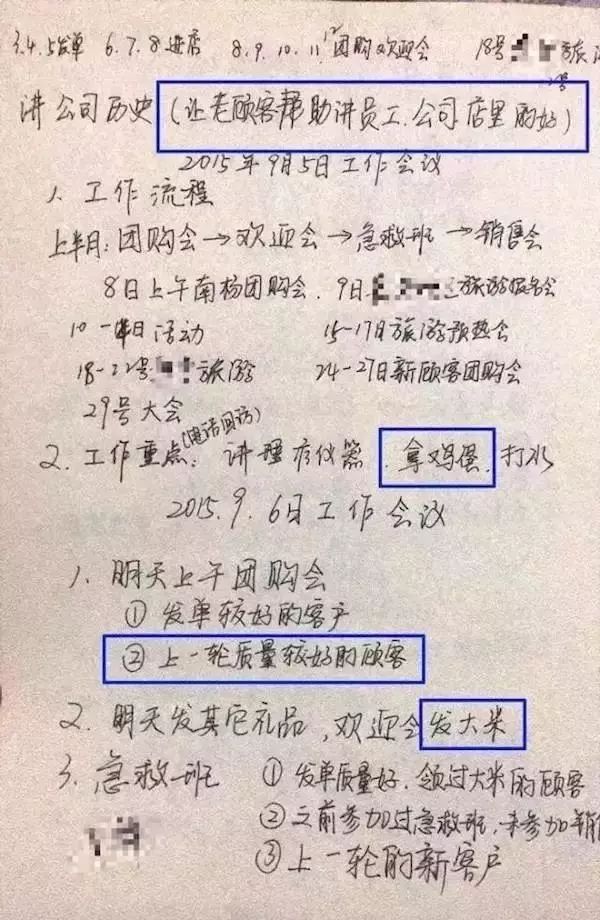 3.4.5发单 6.7.8进店 8.9.10.11.12团购欢迎会 18号 旅游
22号
讲公司历史(让老顾客帮助讲员工.公司店里的好)
2015年9月5日工作会议
1、工作流程
上半月:团购会→欢迎会→急救班→销售会
8日上午南杨团购会.9日 旅游报名会
10-14日活动 15-17日旅游预热会
18-22号 旅游 24-27日新顾客团购会
29号大会
(电话回访)
2、工作重点:讲理疗仪器.拿鸡蛋.打水
2015.9.6日工作会议
1、明天上午团购会
①发单较好的客户
②上一轮质量较好的顾客
2、明天发其它礼品,欢迎会发大米
3、急救班 ①发单质量好.领过大米的顾客
②之前参加过急救班,未参加销
③上一轮的新客户